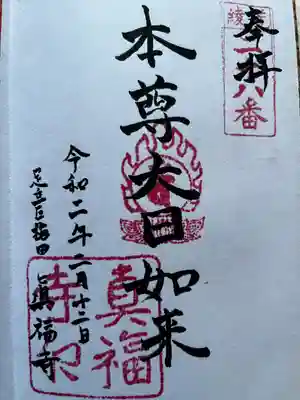 奉拝
八番
本尊大日如来
令和二年二月十二日
足立区梅田
真福寺
真福
寺印